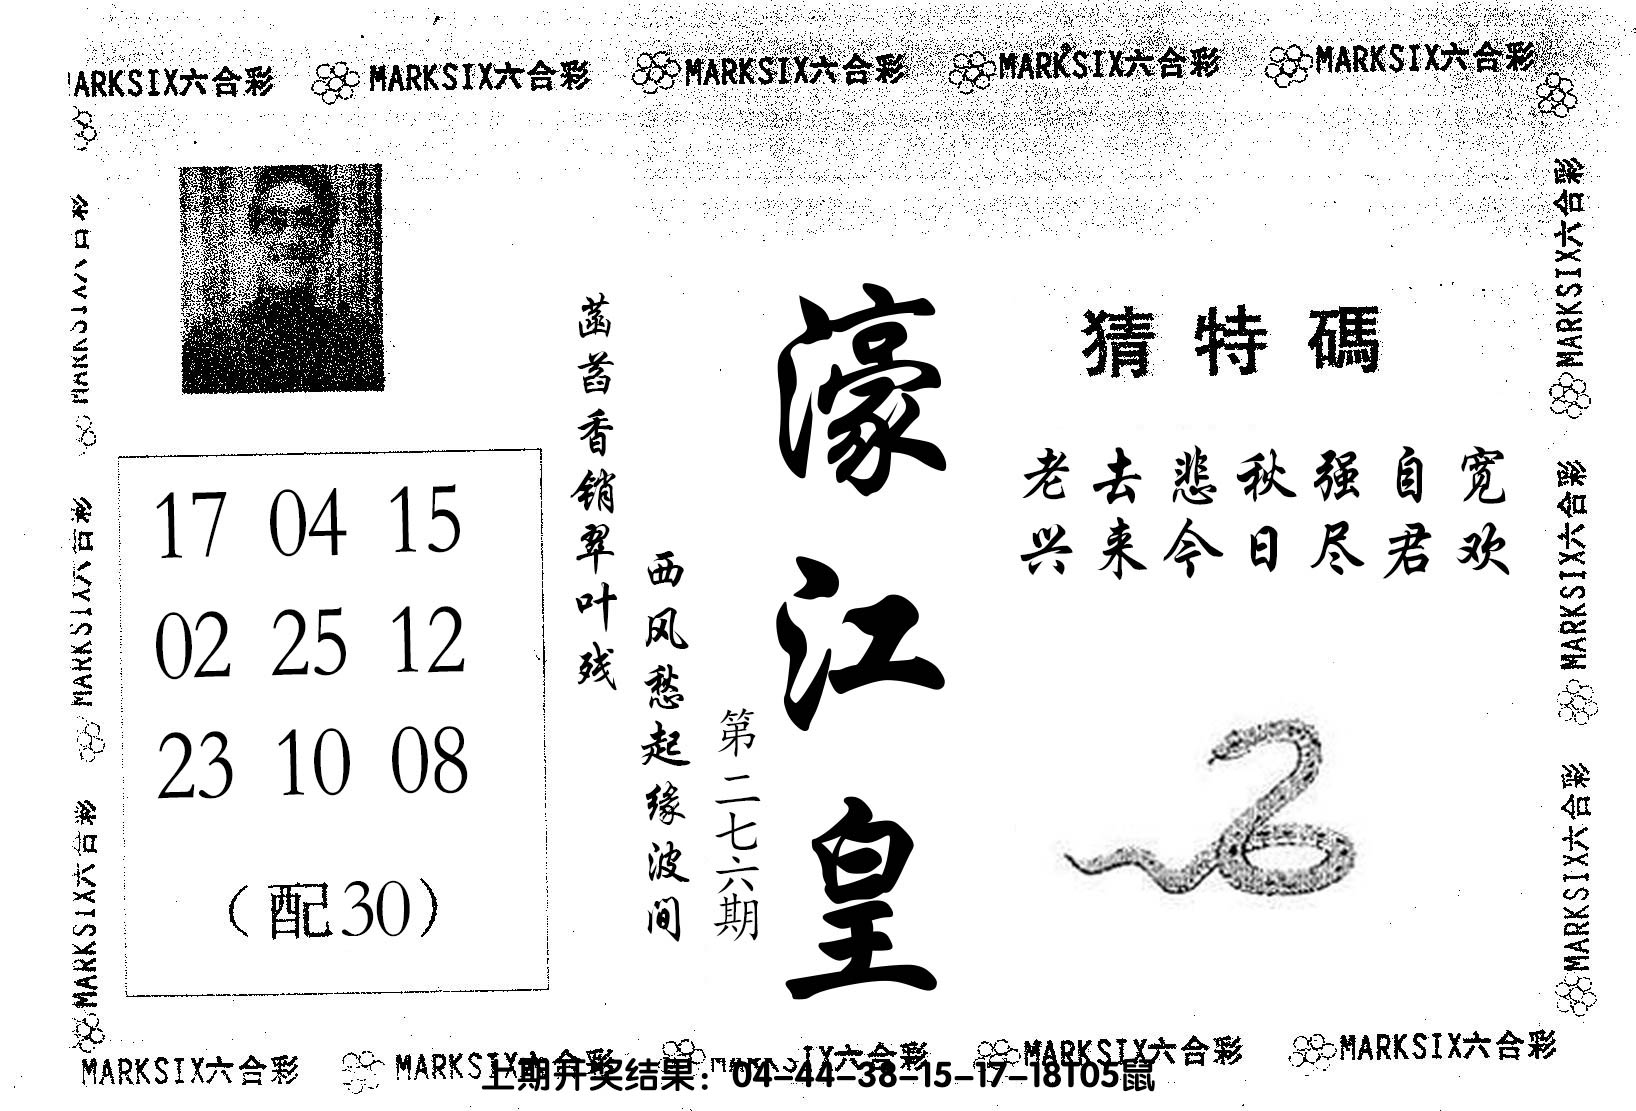 MARKSIX六合彩 MARKSIX六合彩 MARKSIX六合彩 MARKSIX六合彩
猜特碼
老去悲秋强自宽
兴来今日尽君欢
濠江皇
第二七六期
菡萏香销翠叶残
西风愁起缘波间
17 04 15
02 25 12
23 10 08
（配30）
MARKSIX六合彩
MARKSIX六合彩
MARKSIX六合彩
MARKSIX六合彩
MARKSIX六合彩
MARKSIX六合彩 MARKSIX六合彩 MARKSIX六合彩 MARKSIX六合彩
上期开奖结果：04-44-38-15-17-18T05鼠